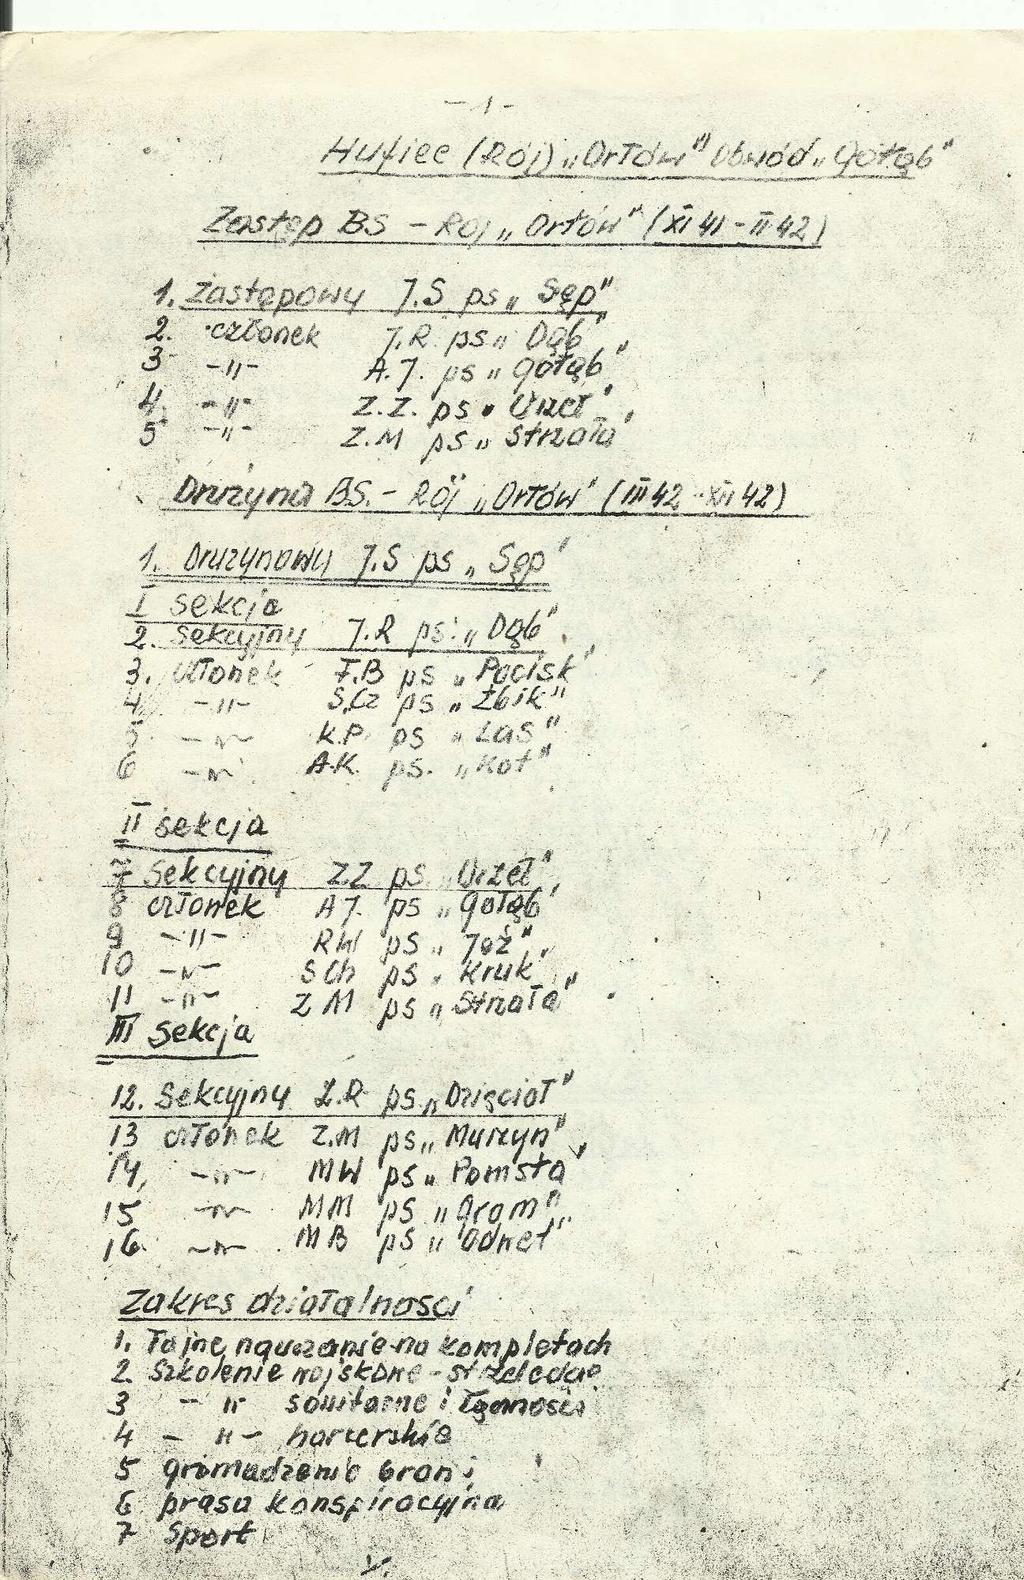 - 1 -
Hufiec (Rój) „Orłów" Obwód „Gołąb"
Zastęp BS - Rój „Orłów" (XI 41 - II 42)
1. Zastępowy J.S ps „Sęp"
2. członek J.R. ps „Dąb"
3 -"- A.J. ps „Gołąb"
4. -"- Z.Z. ps „Orzeł"
5 -"- Z.M ps „Strzała"
Drużyna BS. - Rój „Orłów" (III 42 - XII 42)
1. Drużynowy J.S ps „Sęp"
I sekcja
2. Sekcyjny J.R ps. „Dąb"
3. członek F.B ps „Pocisk"
4 -"- S.Cz ps „Żbik"
5 -"- K.P. ps „Las"
6 -"- A.K. ps. „Kot"
II sekcja
7 Sekcyjny Z.Z ps „Orzeł"
8 członek A J. ps „Gołąb"
9 -"- RW ps „Jeż"
10 -"- S Ch ps „Kruk"
11 -"- Z M ps „Strzała"
III Sekcja
12. Sekcyjny Z.R ps „Dzięcioł"
13 członek Z.M ps „Murzyn"
14, -"- MW ps „Pomsta"
15 -"- MM ps „Grom"
16. -"- MB ps „Odwet"
Zakres działalności
1. Tajne nauczanie na kompletach
2. Szkolenie wojskowe - strzeleckie
3 - " sanitarne i łączności
4 - " - harcerskie
5 gromadzenie broni
6 prasa konspiracyjna
7 Sport